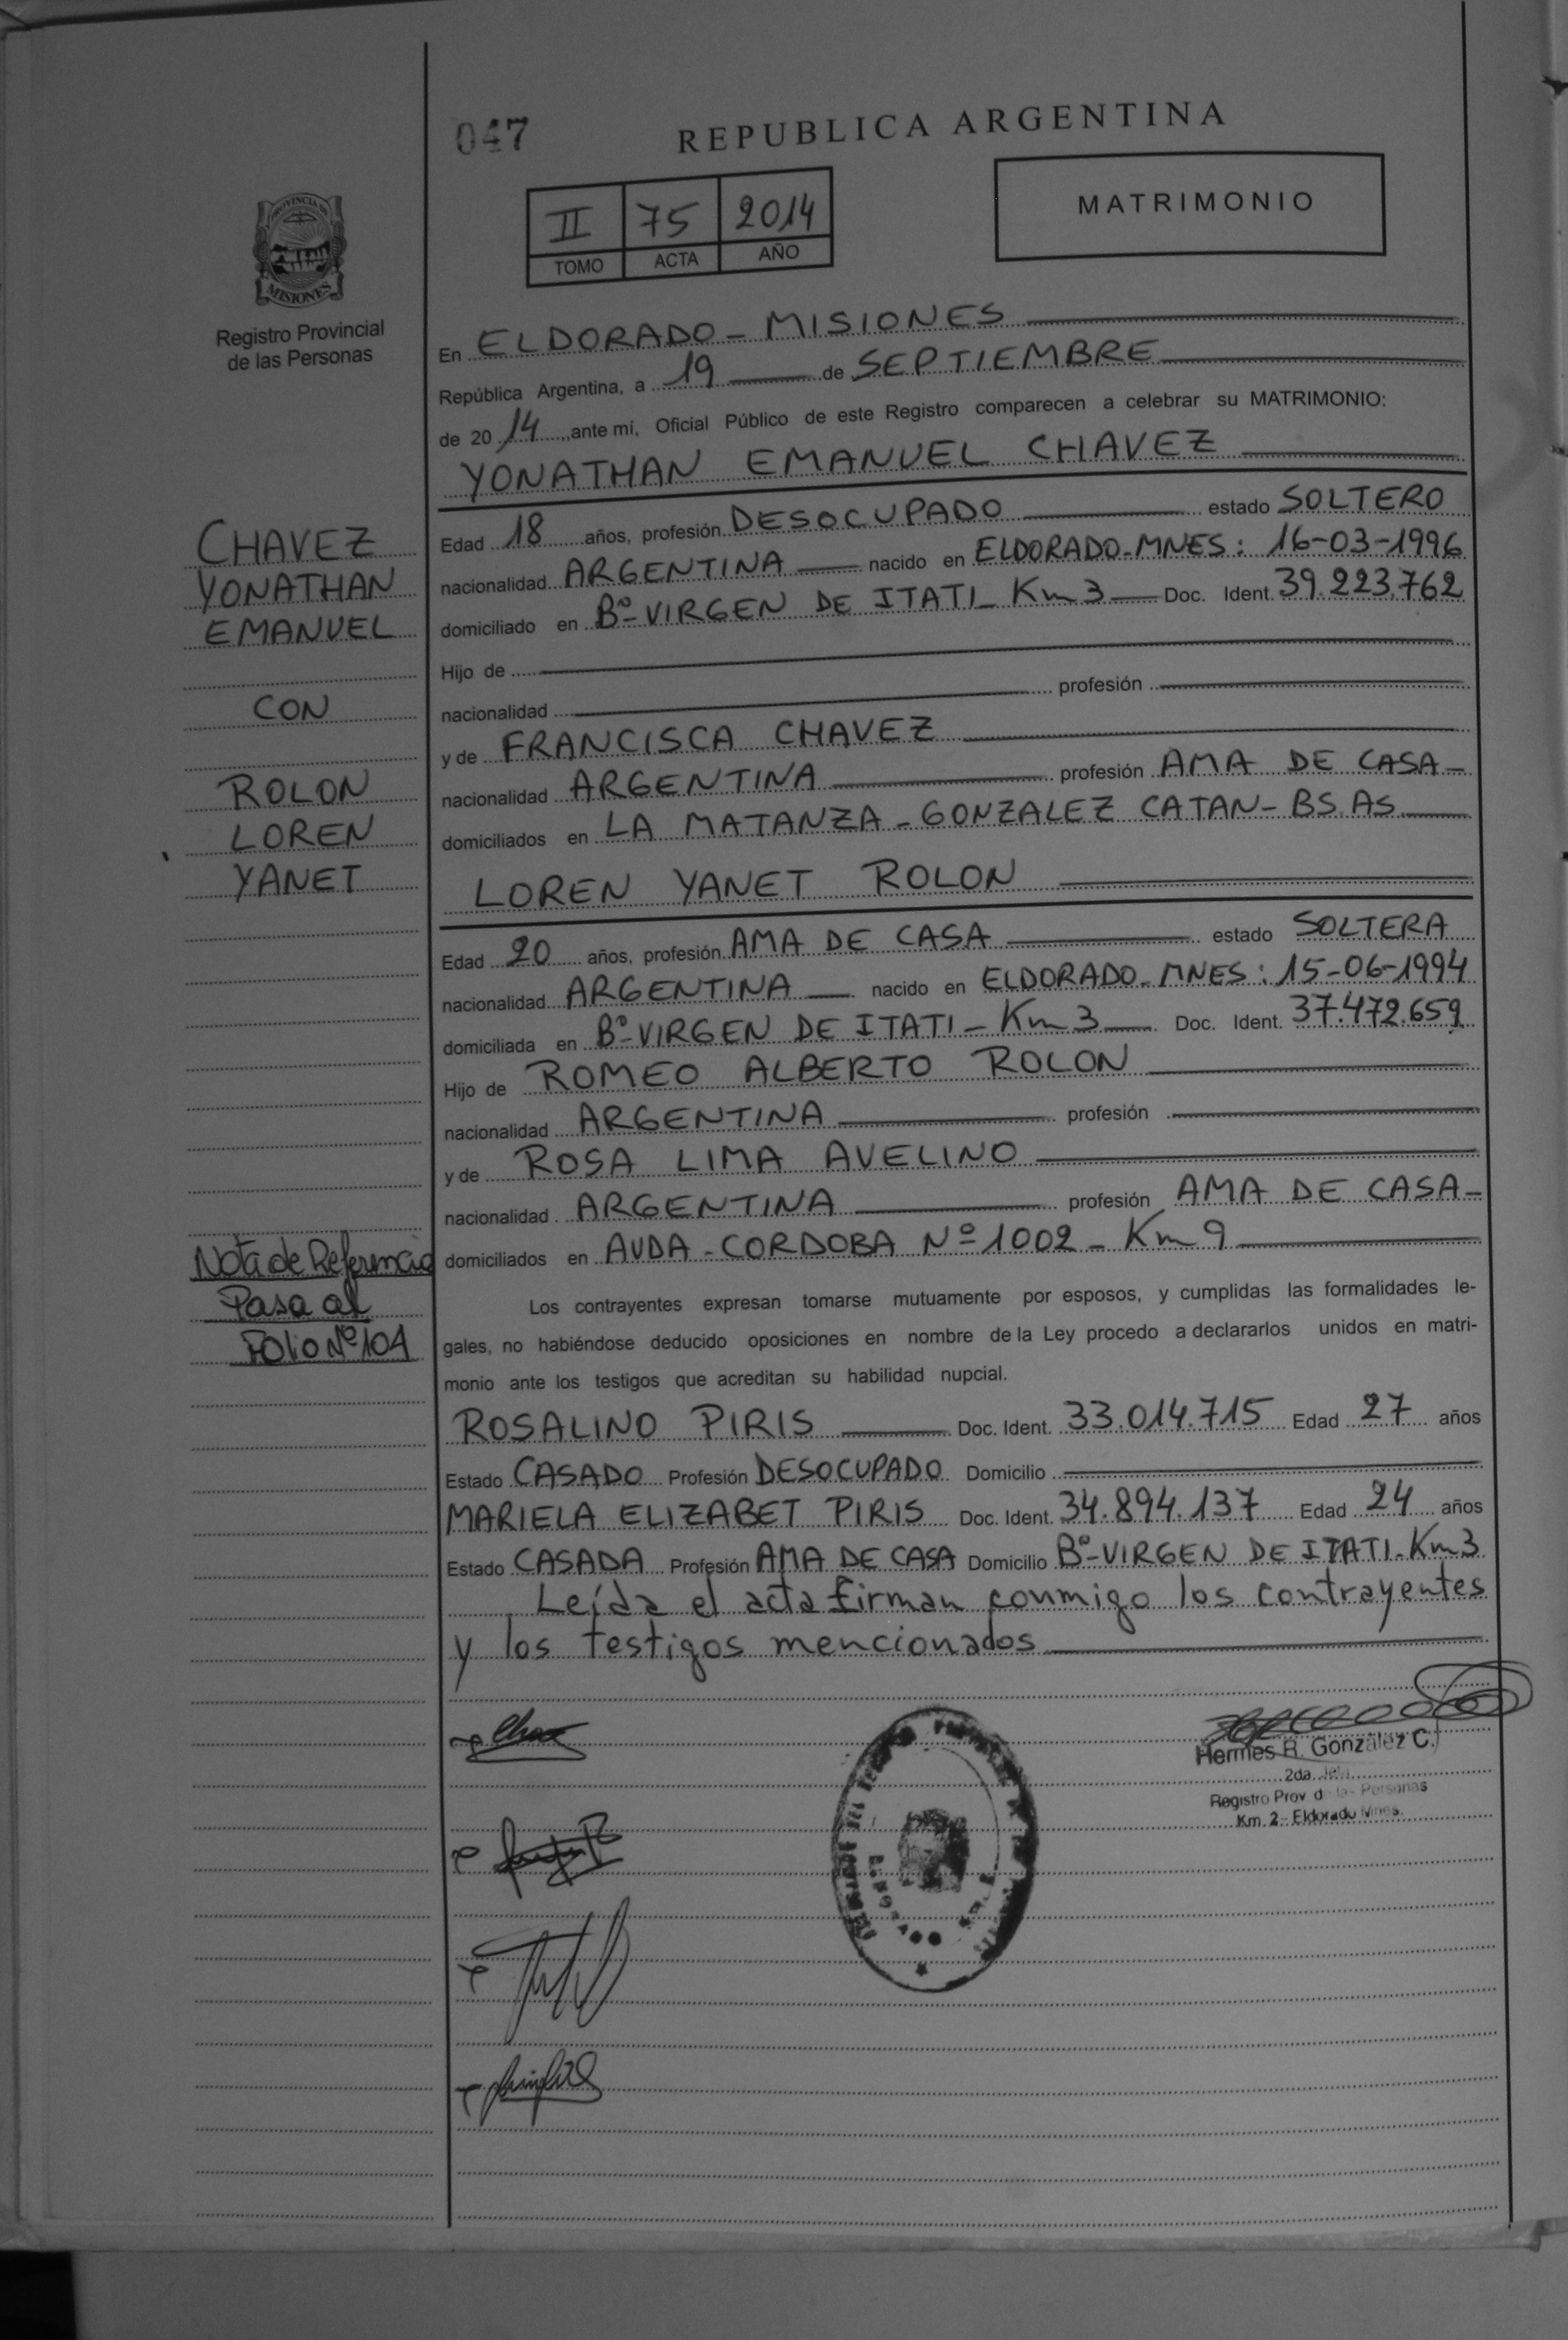 047
REPUBLICA ARGENTINA
II 75 2014
TOMO ACTA AÑO
MATRIMONIO
PROVINCIA DE
MISIONES
Registro Provincial
de las Personas
En ELDORADO - MISIONES
República Argentina, a 19 de SEPTIEMBRE
de 20 14 ante mí, Oficial Público de este Registro comparecen a celebrar su MATRIMONIO:
YONATHAN EMANUEL CHAVEZ
CHAVEZ
YONATHAN
EMANUEL
CON
ROLON
LOREN
YANET
Edad 18 años, profesión DESOCUPADO estado SOLTERO
nacionalidad ARGENTINA nacido en ELDORADO-MNES: 16-03-1996
domiciliado en Bº-VIRGEN DE ITATI - Km 3 Doc. Ident. 39.223.762
Hijo de
nacionalidad profesión
y de FRANCISCA CHAVEZ
nacionalidad ARGENTINA profesión AMA DE CASA -
domiciliados en LA MATANZA - GONZALEZ CATAN - BS. AS.
LOREN YANET ROLON
Edad 20 años, profesión AMA DE CASA estado SOLTERA
nacionalidad ARGENTINA nacido en ELDORADO-MNES: 15-06-1994
domiciliada en Bº-VIRGEN DE ITATI - Km 3 Doc. Ident. 37.472.659
Hijo de ROMEO ALBERTO ROLON
nacionalidad ARGENTINA profesión
y de ROSA LIMA AVELINO
nacionalidad ARGENTINA profesión AMA DE CASA -
domiciliados en AVDA - CORDOBA Nº 1002 - Km 9
Nota de Referencia
Pasa al
Folio Nº 104
Los contrayentes expresan tomarse mutuamente por esposos, y cumplidas las formalidades le-
gales, no habiéndose deducido oposiciones en nombre de la Ley procedo a declararlos unidos en matri-
monio ante los testigos que acreditan su habilidad nupcial.
ROSALINO PIRIS Doc. Ident. 33.014.715 Edad 27 años
Estado CASADO Profesión DESOCUPADO Domicilio
MARIELA ELIZABET PIRIS Doc. Ident. 34.894.137 Edad 24 años
Estado CASADA Profesión AMA DE CASA Domicilio Bº-VIRGEN DE ITATI - Km 3
Leída el acta firman conmigo los contrayentes
y los testigos mencionados
Hermes R. González C.
2da. Jefa
Registro Prov de las Personas
Km. 2 - Eldorado Mnes.